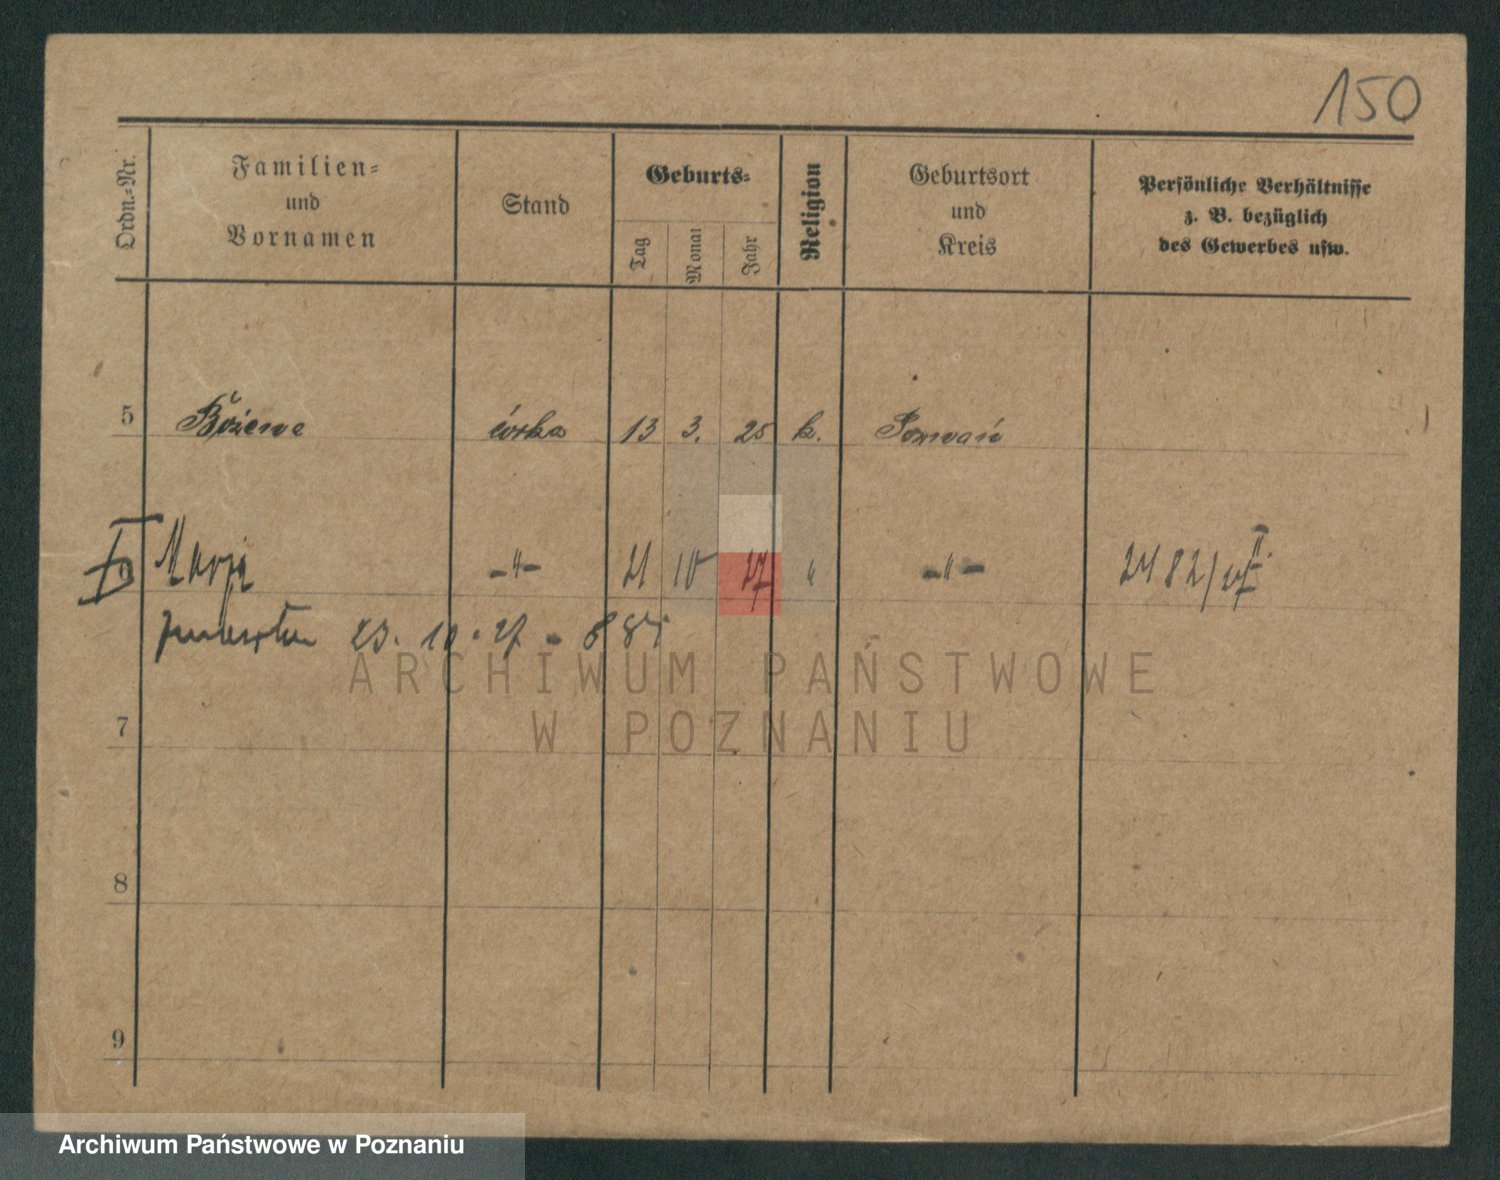 150
Ordn.-Nr.
Familien-
und
Vornamen
Stand
Geburts-
Tag
Monat
Jahr
Religion
Geburtsort
und
Kreis
Persönliche Verhältnisse
z. B. bezüglich
des Gewerbes usw.
5 Božena córka 13 3. 25 k. Poznań
6 Marja -"- 21 10 27 " -"- 2482/
23. 10. 27 -
ARCHIWUM PAŃSTWOWE
W POZNANIU
7
8
9
Archiwum Państwowe w Poznaniu